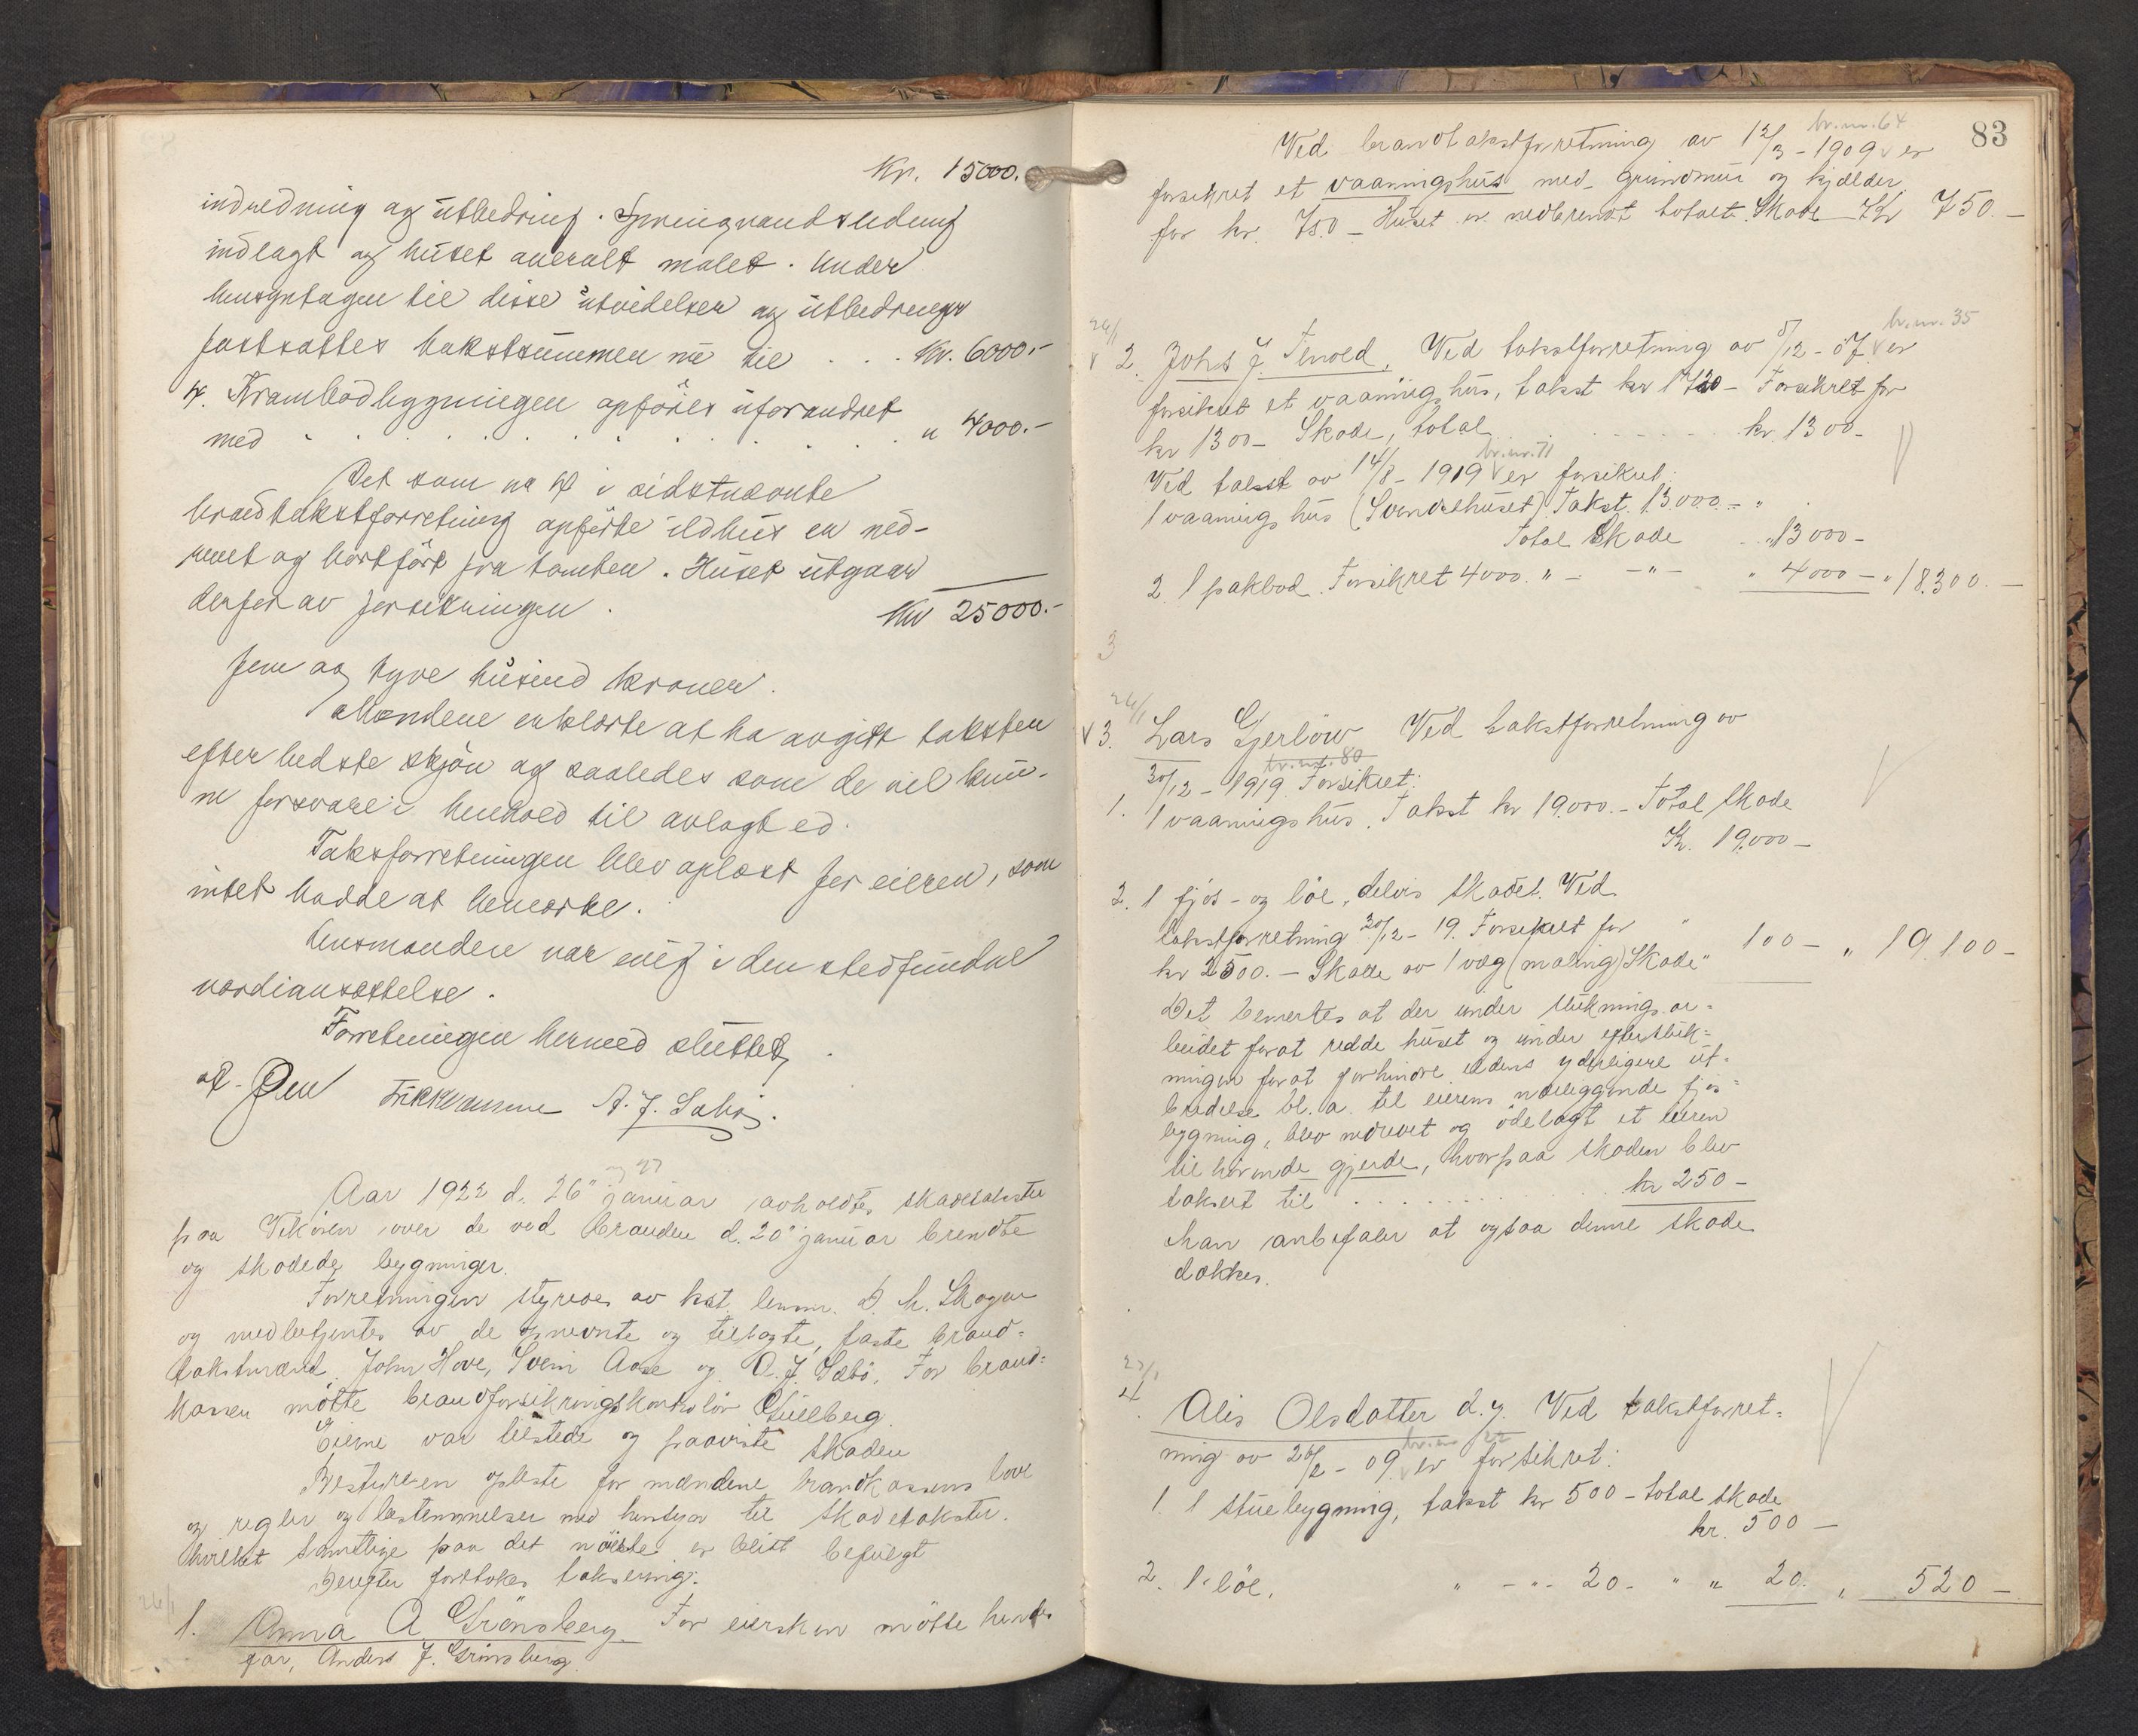 Kr. 15000.
indredning og utbedring. Springvandsledning
indlagt og huset overalt malet. Under
hensyntagen til disse utvidelser og utbedringer
fastsattes takstsummen nu til . . . Kr. 6000.-
4. Krambodbygningen opføres uforandret
med . . . . . . . . . . . . . " 4000.-
Det som nr 4 i sidstnævnte
brandtakstforretning opførte ildhus er ned-
revet og bortført fra tomten. Huset utgaar
derfor av forsikringen.
Kr 25000.-
Fem og tyve tusind kroner.
Mændene erklærte at ha avgitt taksten
efter bedste skjøn og saaledes som de vil kun-
ne forsvare i henhold til avlagt ed.
Taksforretningen blev oplæst for eieren, som
intet hadde at bemerke.
Lensmanden var enig i den stedfundne
værdiansættelse.
Forretningen hermed sluttet.
A. J. Sæbø.
og 27
Aar 1922 d. 26" januar avholdtes skadetakster
paa Vikøren over de ved branden d. 20" januar brendte
og skadede bygninger.
Forretningen styredes av kst. lensm. D. M. Skogen
og medbetjentes av de opnevnte og tillagte, faste brand=
takstmænd John Hove, Svein Aase og O. J. Sæbø. For brand=
kassen møtte brandforsikringskontrolør Stueberg.
Eierne var tilstede og paaviste skaden
Bestyreren oplæste for mændene brandkassens love
og regler og bestemmelser med hensyn til skadetakster.
hvilket samtlige paa det nøieste er blit befulgt
Derefter foretokes taksering:
26/1
1. Anna A Grønsberg. For eiersken møtte hendes
far, Anders J. Grønsberg.
83
br. nr. 64
Ved brandtakstforretning av 12/3 - 1909 er
forsikret et vaaningshus med grundmur og kjælder.
for kr. 750 - Huset er nedbrendt totalt. Skade Kr 750.-
26/1
br. nr. 35
2. Johs J. Tenold. Ved takstforretning av 5/12 - 07 er
forsikret et vaaningshus, takst kr 1720 - Forsikret for
kr 1300 - Skade, total . . . . . . kr. 1300-
br. nr. 71
Ved takst av 14/8 - 1919 er forsikret:
1 vaaningshus (Svendsehuset) Takst. 13000.- "
Total Skade . . " 13000-
2 1 pakbod. Forsikret 4000. " - -"- " 4000- " 18.300.-
3
26/1
3. Lars Gjerløw Ved takstforretning av
br. nr. 80
30/12 - 1919 Forsikret:
1. 1 vaaningshus. Takst kr 19.000.- Total skade
Kr. 19.000-
2. 1 fjøs- og løe, delvis skadet. Ved
takstforretning 30/12 - 19. Forsikret for
kr 2500.- Skade av 1 væg (maling) Skade " 100- " 19.100-
Det bemerkes at der under slukningsar=
beidet forat redde huset og under efterslik=
ningen forat forhindre ildens yderligere ut=
bredelse bl. a. til eierens næsliggende fjøs=
bygning, blev nedrevet og ødelagt et eieren
tilhørende gjerde, hvorpaa skaden blev
taksert til . . . . . . . . kr 250-
Man anbefaler at ogsaa denne skade
dækkes.
27/1
4. Alis Olsdatter d. y. Ved takstforret=
br. nr 22
ning av 26/2 - 09. er forsikret:
1. 1 stuebygning, takst kr 500 - total skade
kr. 500 -
2. 1 løe, " -"- 20- " " 20. " 520 -